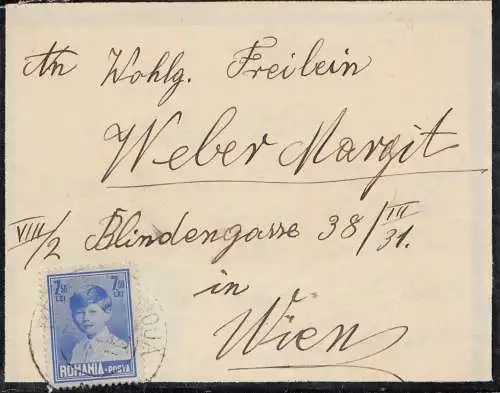 An Wohlg. Freilein
Weber Margit
VIII/2 Blindengasse 38/III/31.
in
Wien
7.50 LEI 7.50 LEI
ROMANIA • POSTA